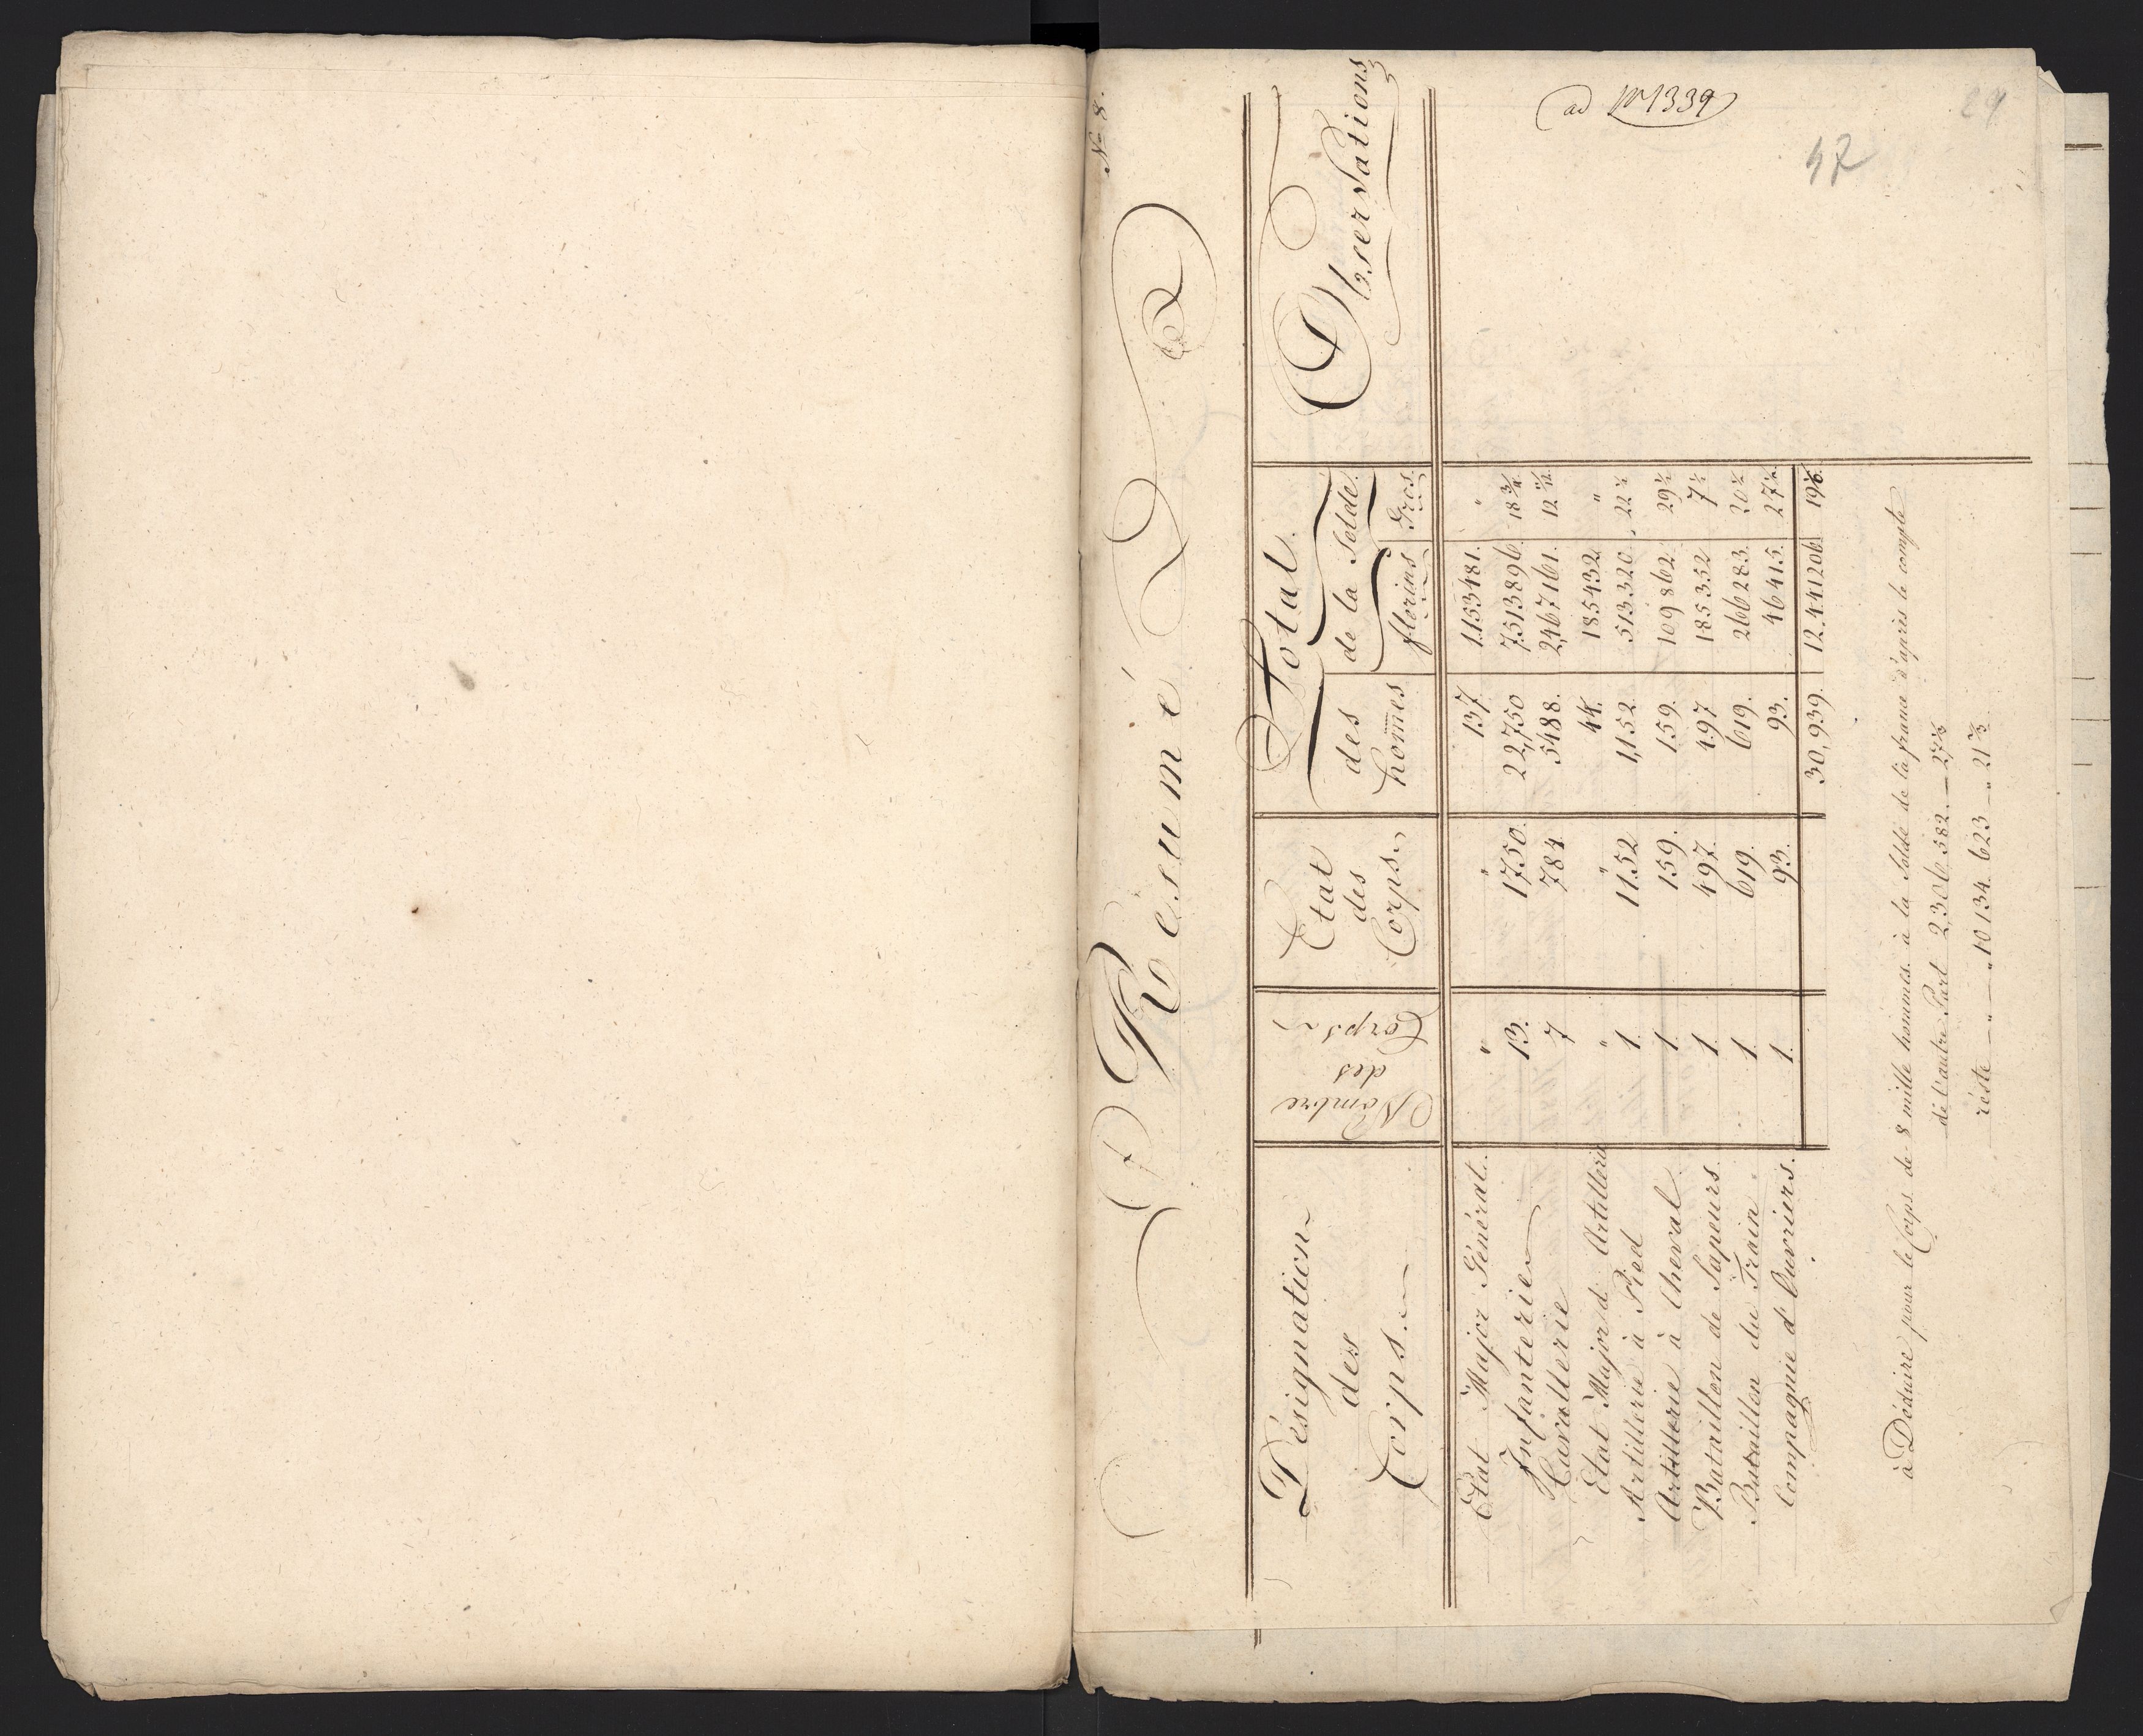 N° 8.
Résumé
Désignation des Corps. Nombre des Corps Etat des Corps. Total des hommes Total de la Solde florins Gros. Observations
Etat Major Général. " " 137. 1.153481. "
Infanterie 13. 1750. 22,750 7.513896. 18 3/4
Cavallerie 7 784. 5488. 2,467161. 12
Etat Major d'Artillerie " " 44. 185432. "
Artillerie à Pied 1. 1152 1,152. 513320. 22 1/2
Artillerie à Cheval 1. 159. 159. 109862. 29 1/2
Bataillon de Sapeurs 1. 497. 497 185352 7 1/2
Bataillon du Train 1. 619. 619. 266283.
Compagnie d'Ouvriers. 1. 93. 93. 46415. 27 1/2
30,939. 12.441206
à Déduire pour le Corps de 8 mille hommes à la Solde de la france d'après le compte
de l'autre Part 2,306582.
réste 10134623
ad N 1339
47
29